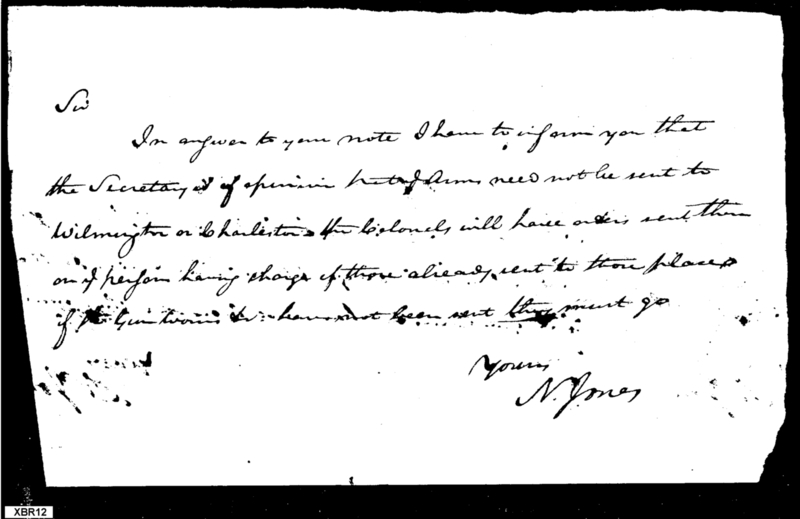 Sir
In answer to your note I have to inform you that
the Secretary is of opinion that Arms need not be sent to
Wilmington or Charleston the Colonels will have orders sent them
on persons having charge of those already sent to those places
if the have not been sent they must go
Yours
N. Jones
XBR12